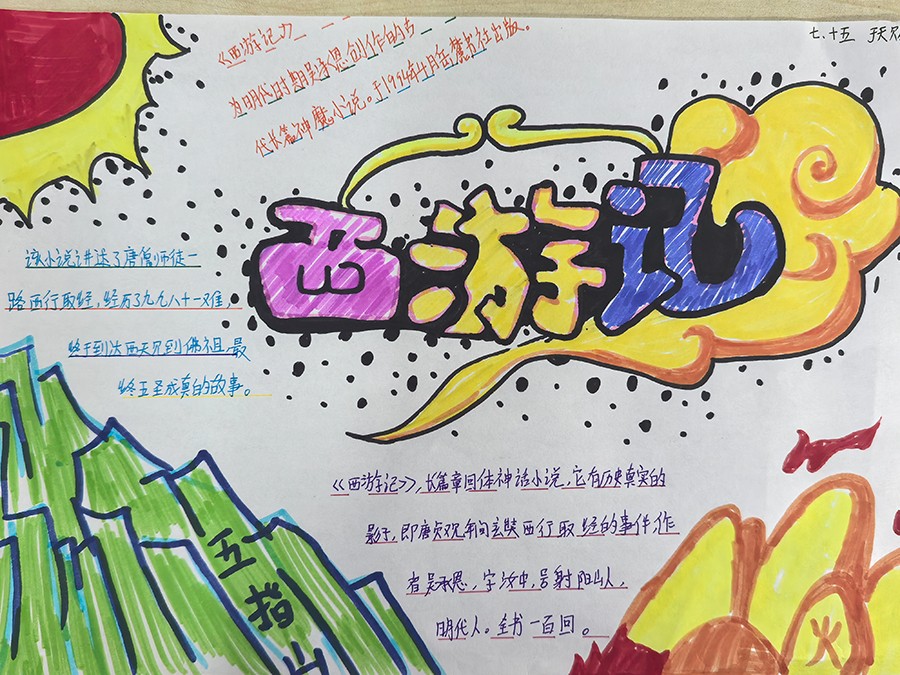 七.十五
《西游记》
为明代时期吴承恩创作的古
代长篇神魔小说。于1994年4月岳麓书社出版。
西游记
该小说讲述了唐僧师徒一
路西行取经,经历了九九八十一难,
终于到达西天见到佛祖,最
终五圣成真的故事。
五指山
《西游记》,长篇章回体神话小说,它有历史真实的
影子,即唐贞观年间玄奘西行取经的事件作
者吴承恩,字汝中,号射阳山人,
明代人。全书一百回。
火